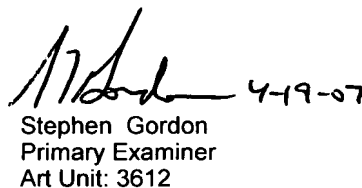 4-19-07
Stephen Gordon
Primary Examiner
Art Unit: 3612